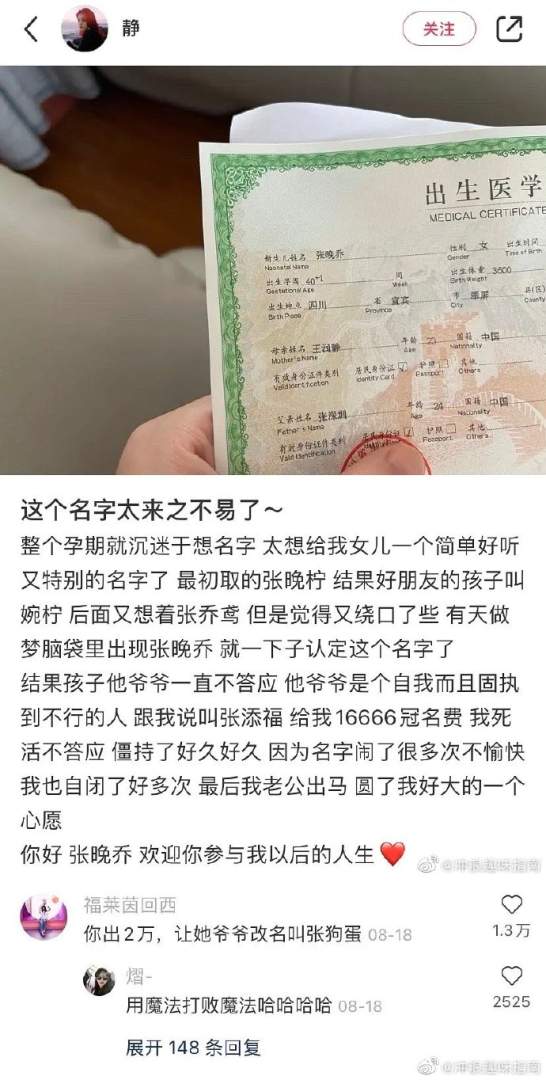 静
关注
出生医学
MEDICAL CERTIFICATE
新生儿姓名 张晚乔 性别 女 出生时间
Neonatal Name Gender Time of Birth
出生孕周 40+1 周 出生体重 3600
Gestational Age Birth Weight
出生地点 四川 省 宜宾 市 翠屏 县(区)
Birth Place Province City County
母亲姓名 年龄 国籍 中国
Mother's Name Age Nationality
有效身份证件类别 居民身份证 护照 其他
Identity Card Passport Others
父亲姓名 年龄 24 国籍 中国
Father's Name Age Nationality
有效身份证件类别 居民身份证 护照 其他
Valid Identification Passport Others
这个名字太来之不易了～
整个孕期就沉迷于想名字 太想给我女儿一个简单好听
又特别的名字了 最初取的张晚柠 结果好朋友的孩子叫
婉柠 后面又想着张乔鸢 但是觉得又绕口了些 有天做
梦脑袋里出现张晚乔 就一下子认定这个名字了
结果孩子他爷爷一直不答应 他爷爷是个自我而且固执
到不行的人 跟我说叫张添福 给我16666冠名费 我死
活不答应 僵持了好久好久 因为名字闹了很多次不愉快
我也自闭了好多次 最后我老公出马 圆了我好大的一个
心愿
你好 张晚乔 欢迎你参与我以后的人生❤️
@冲浪趣味指南
福莱茵回西
你出2万，让她爷爷改名叫张狗蛋 08-18
1.3万
熠-
用魔法打败魔法哈哈哈哈 08-18
2525
展开 148 条回复
@冲浪趣味指南